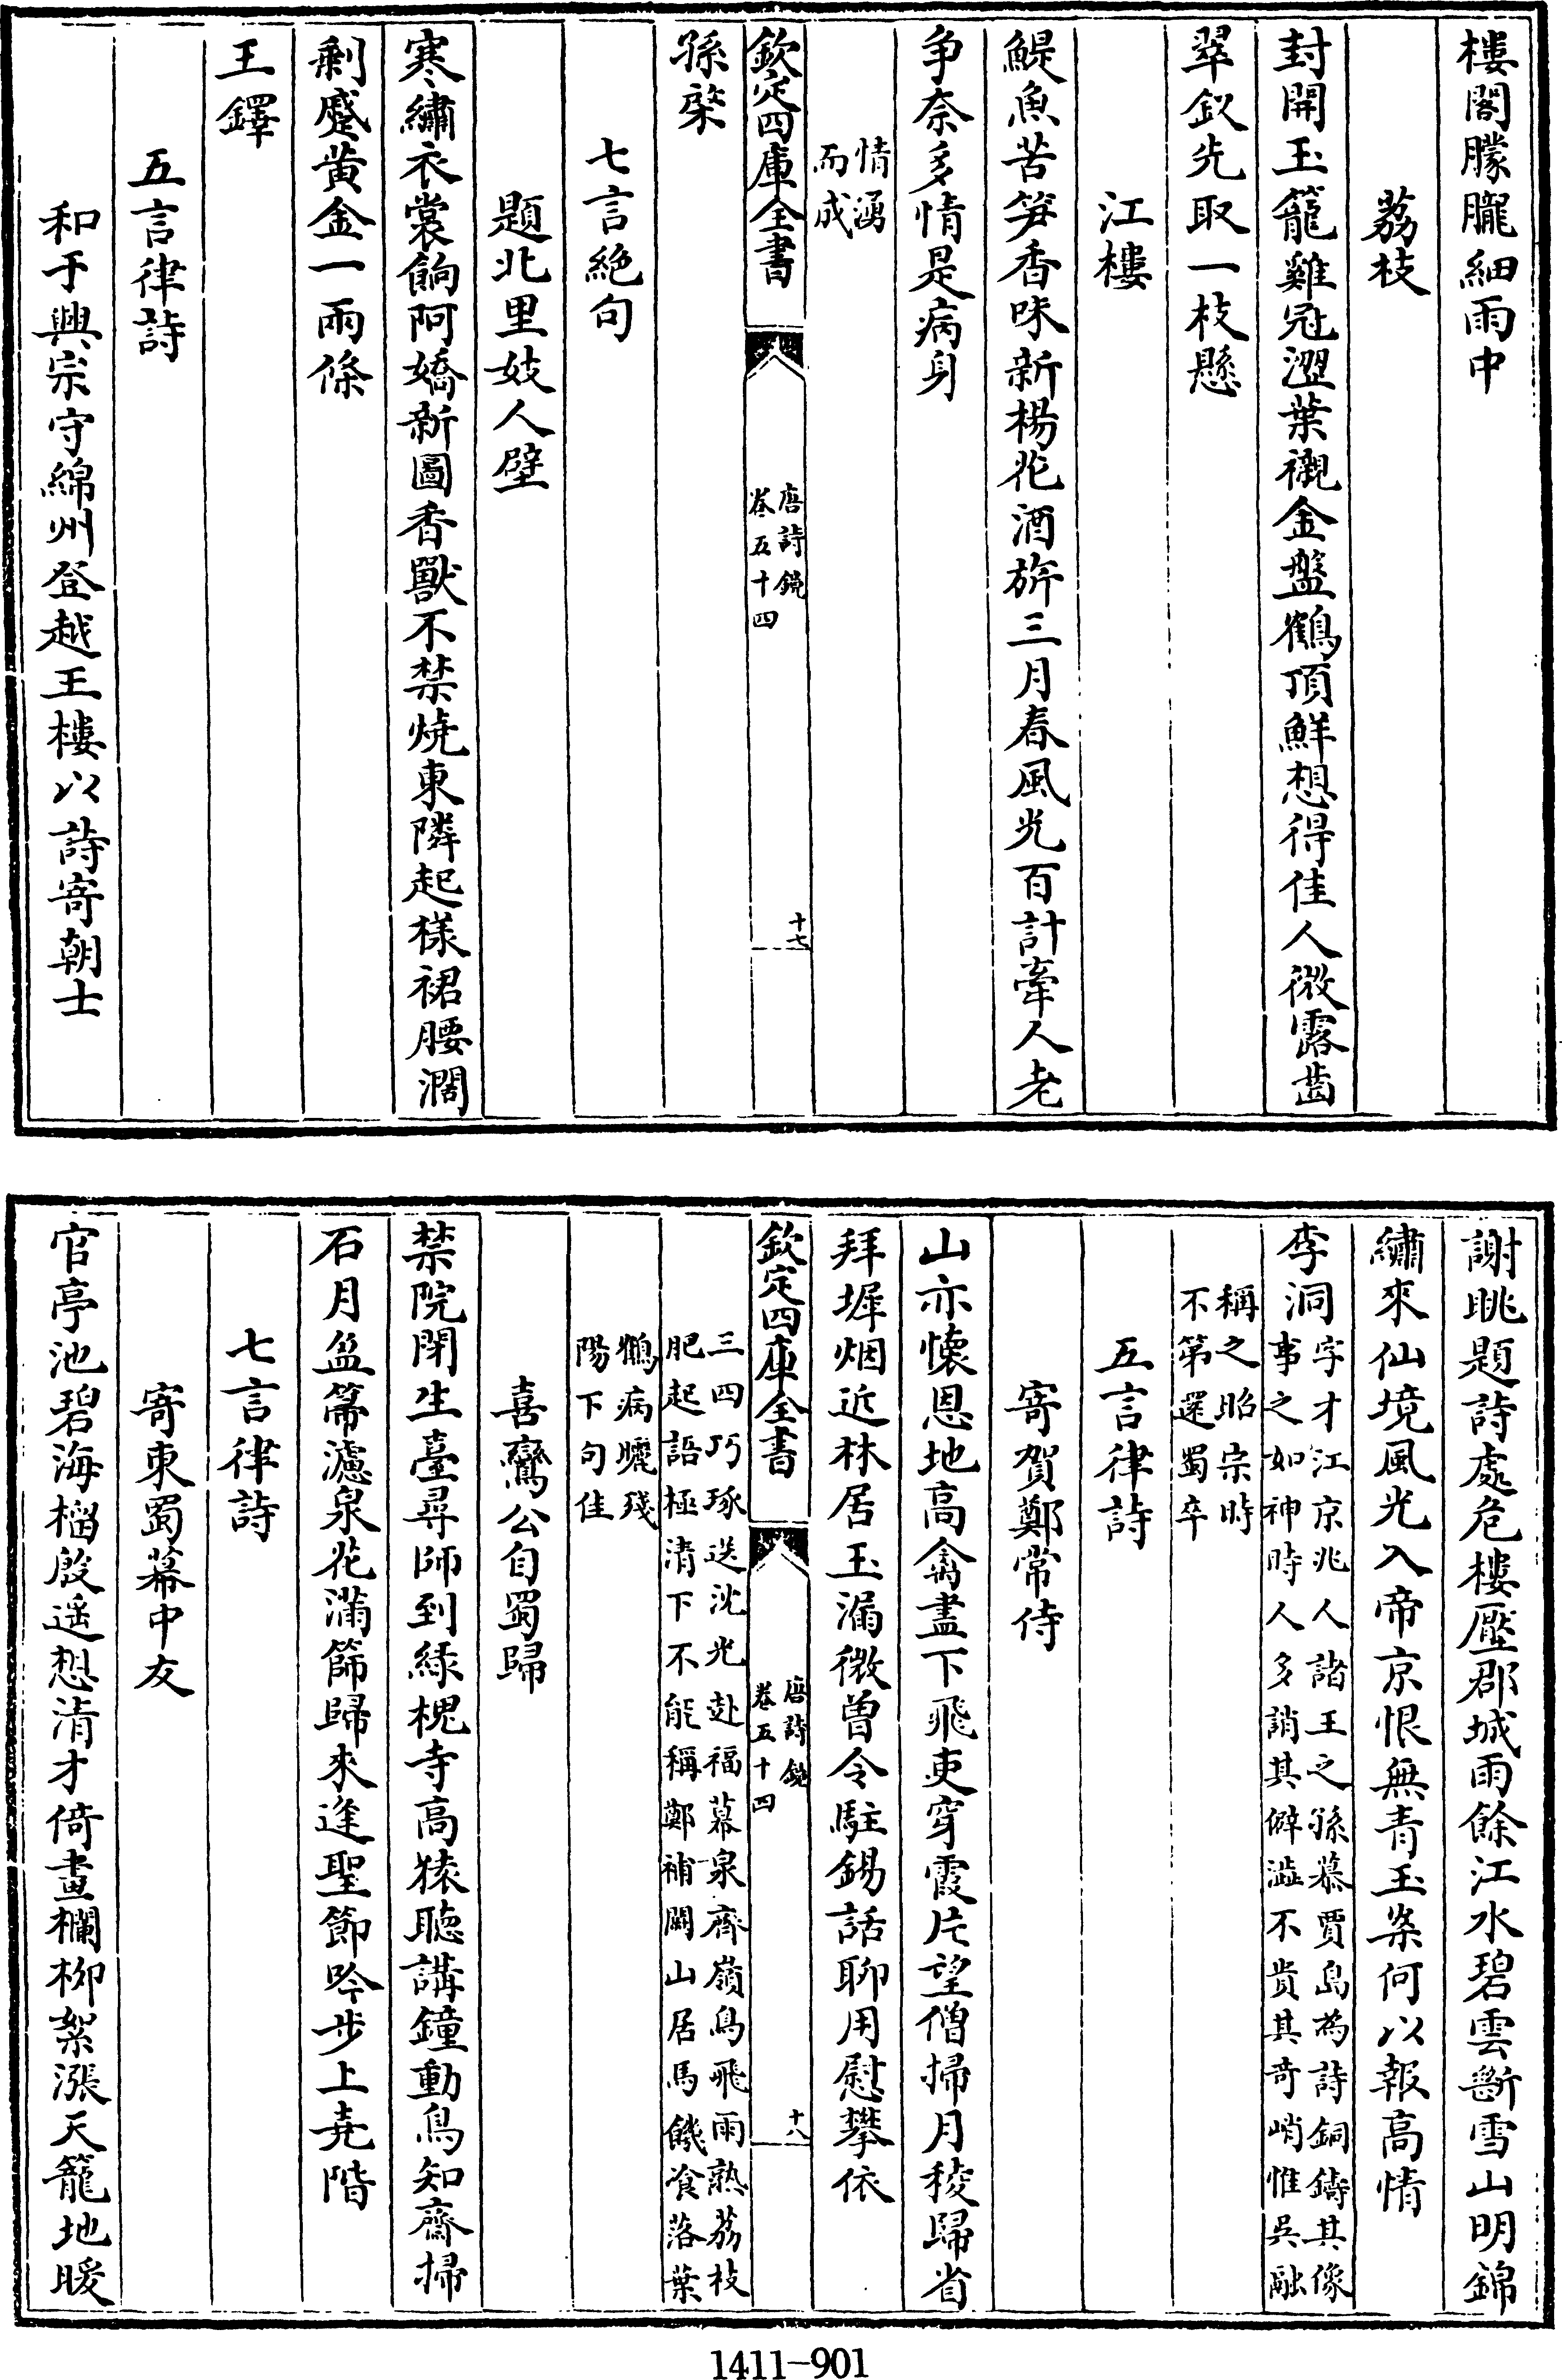 樓閣朦朧細雨中
荔枝
封開玉籠雞冠澀葉襯金盤鶴頂鮮想得佳人微露齒
翠釵先取一枝懸
江樓
鯷魚苦笋香味新楊花酒斾三月春風光百計牽人老
争奈多情是病身
情湧
而成
欽定四庫全書
唐詩鏡
卷五十四
十七
孫棨
七言絶句
題北里妓人壁
寒繡衣裳餉阿嬌新圖香獸不禁燒東隣起樣裙腰濶
剩蹙黄金一兩條
王鐸
五言律詩
和于興宗守綿州登越王樓以詩寄朝士
謝眺題詩處危樓壓郡城雨餘江水碧雲斷雪山明錦
繡來仙境風光入帝京恨無青玉案何以報高情
李洞
字才江京兆人諸王之孫慕賈島為詩銅鑄其像
事之如神時人多誚其僻澁不貴其奇峭惟吳融
稱之昭宗時
不第還蜀卒
五言律詩
寄賀鄭常侍
山亦懷恩地高禽盡下飛吏穿霞片望僧掃月稜歸省
拜墀烟近林居玉漏微曽令駐錫話聊用慰攀依
欽定四庫全書
唐詩鏡
卷五十四
十八
三四巧琢送沈光赴福幕泉齊嶺鳥飛雨熟荔枝
肥起語極清下不能稱鄭補闕山居馬饑飡落葉
鶴病曬殘
陽下句佳
喜鸞公自蜀歸
禁院閉生臺尋師到緑槐寺高猿聽講鐘動鳥知齋掃
石月盆帚濾泉花滿篩歸來逢聖節吟步上堯階
七言律詩
寄東蜀幕中友
官亭池碧海榴殷遥想清才倚畫欄柳絮漲天籠地暖
1411-901